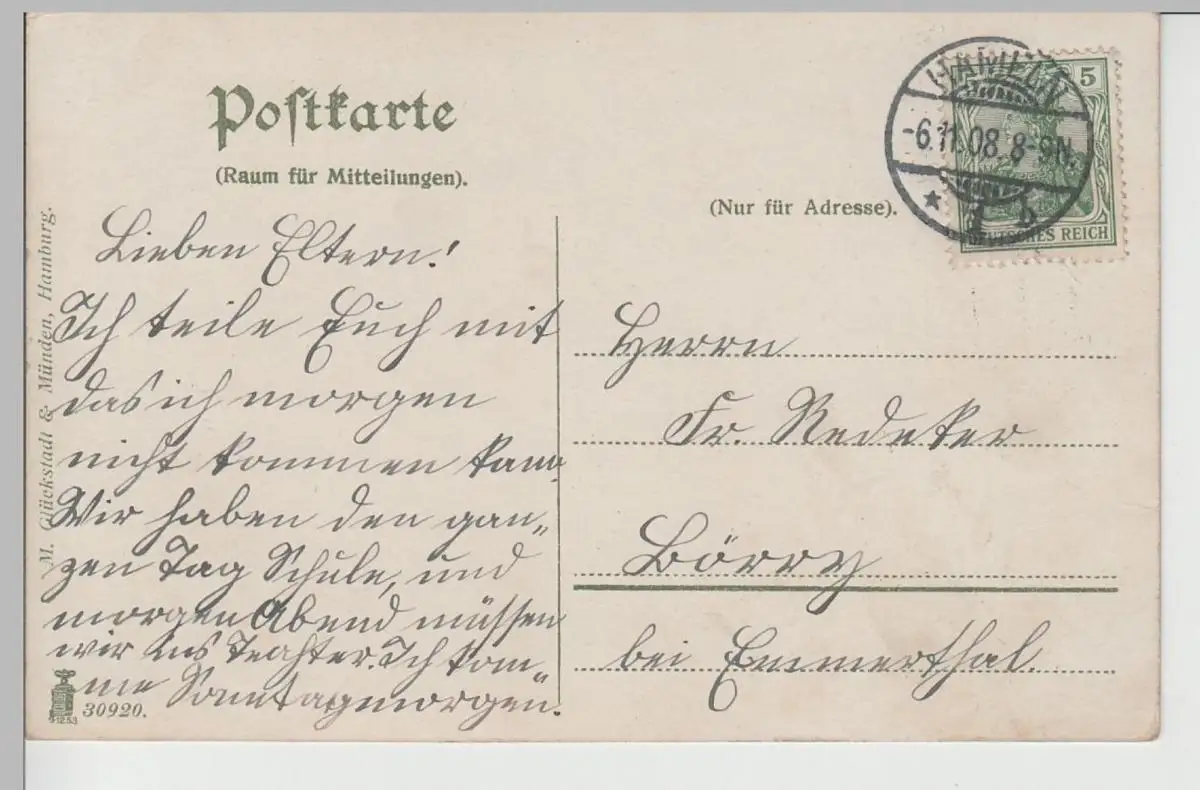 Postkarte
(Raum für Mitteilungen).
(Nur für Adresse).
HAMELN
-6.11.08. 8-9N.
* 1 b
5
DEUTSCHES REICH
Lieben Eltern!
Ich teile Euch mit
das ich morgen
nicht kommen kann.
Wir haben den gan„
zen Tag Schule, und
morgen Abend müssen
wir ins Teahter. Ich kom„
me Sonntagmorgen.
Herrn
Fr. Redeker
Börry
bei Emmerthal.
M. Glückstadt & Münden, Hamburg.
30920.